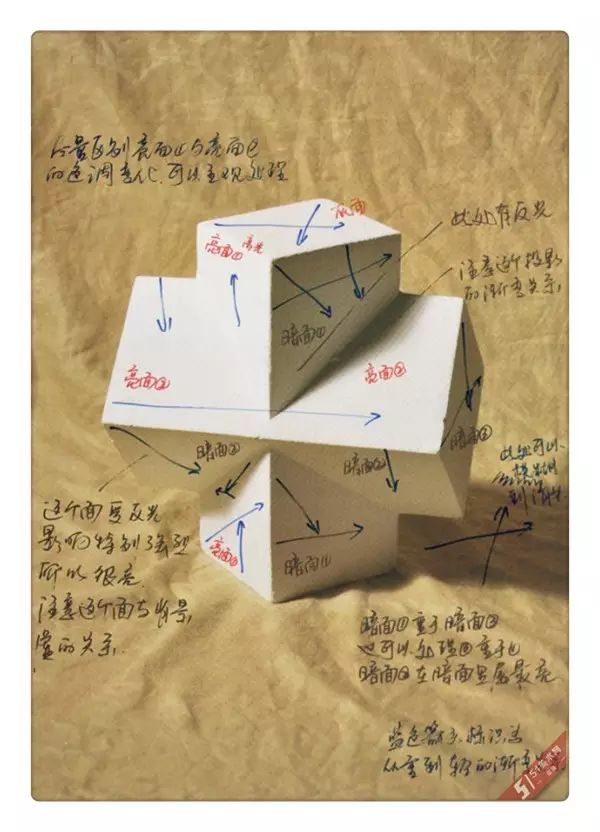 尽量区别亮面①与亮面②
的色调变化.可以主观处理
灰面
亮面① 高光
此处有反光
注意这个投影
的渐变关系.
暗面①
亮面②
亮面②
暗面②
暗面②
暗面③
此处可以
模糊
到消失
这个面受反光
影响特别强烈
所以很亮.
注意这个面与背景
虚的关系.
亮面①
暗面①
暗面①重于暗面②
也可以处理②重于①
暗面③在暗面里属最亮
蓝色箭头标识为
从重到轻的渐变
51美术网